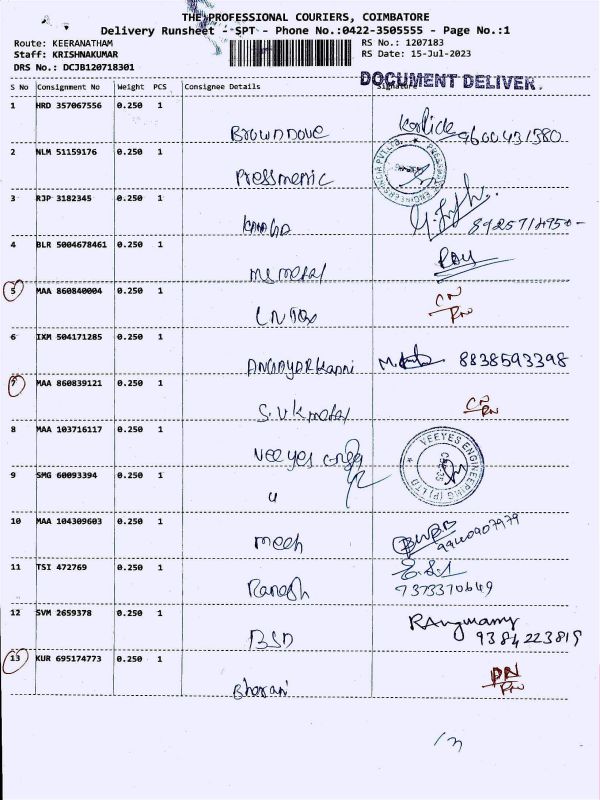 THE PROFESSIONAL COURIERS, COIMBATORE
Delivery Runsheet - SPT - Phone No.:0422-3505555 - Page No.:1
Route: KEERANATHAM RS No.: 1207183
Staff: KRISHNAKUMAR RS Date: 15-Jul-2023
DRS No.: DCJB120718301
DOCUMENT DELIVER.
S No Consignment No Weight PCS Consignee Details
1 HRD 357067556 0.250 1
BrownDove 9600431580
2 NLM 51159176 0.250 1
Pressmenic
3 RJP 3182345 0.250 1
4 BLR 5004678461 0.250 1
ms metal
5 MAA 860840004 0.250 1
LN Tax
6 IXM 504171285 0.250 1
8838593398
7 MAA 860839121 0.250 1
S.V.K metal
8 MAA 103716117 0.250 1
VEEYES ENGINEERING (P) LTD
Veeyes engg
9 SMG 60093394 0.250 1
"
10 MAA 104309603 0.250 1
meeh 9940907979
11 TSI 472769 0.250 1
Ranesh 7373370649
12 SVM 2659378 0.250 1
BSD RAngmamy
9384223819
13 KUR 695174773 0.250 1
Bharani
13